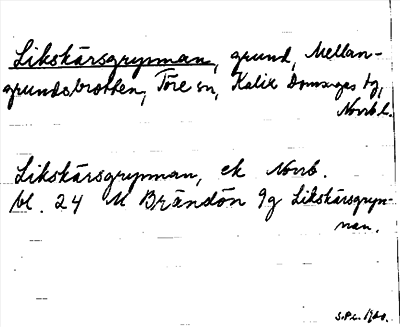 Likskärsgrynnan, grund, Mellan-
grundsbrotten, Töre sn, Kalix Domsagas tg,
Norrb. l.
Likskärsgrynnan, ek Norrb.
bl. 24 M Brändön 9g Likskärsgryn-
nan.